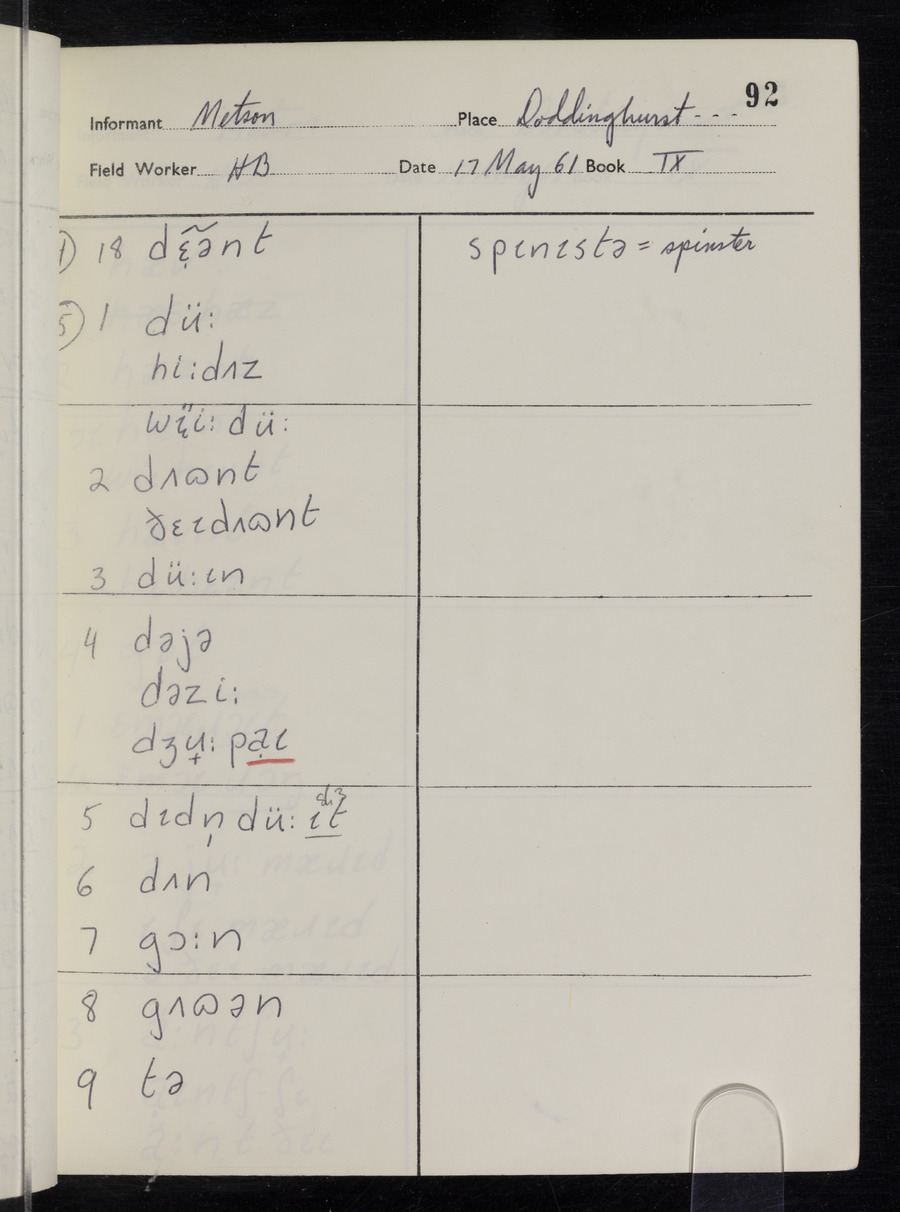 92
Informant Metson Place Doddinghurst - - -
Field Worker HB Date 17 May 61 Book IX
4) 18 dɛ̣̃ə̃nt
spɪnɪstə = spinster
5) 1 dü:
hi:dʌz
wɛ̣̈i: dü:
2 dʌɷnt
ðɛɪdʌɷnt
3 dü:ɪn
4 dəjə
dəzi:
dʒu̟: pạɪ
5 dɪdn̩ dü: ɪt
6 dʌn
7 gɔ:n
8 gʌɷən
9 tə